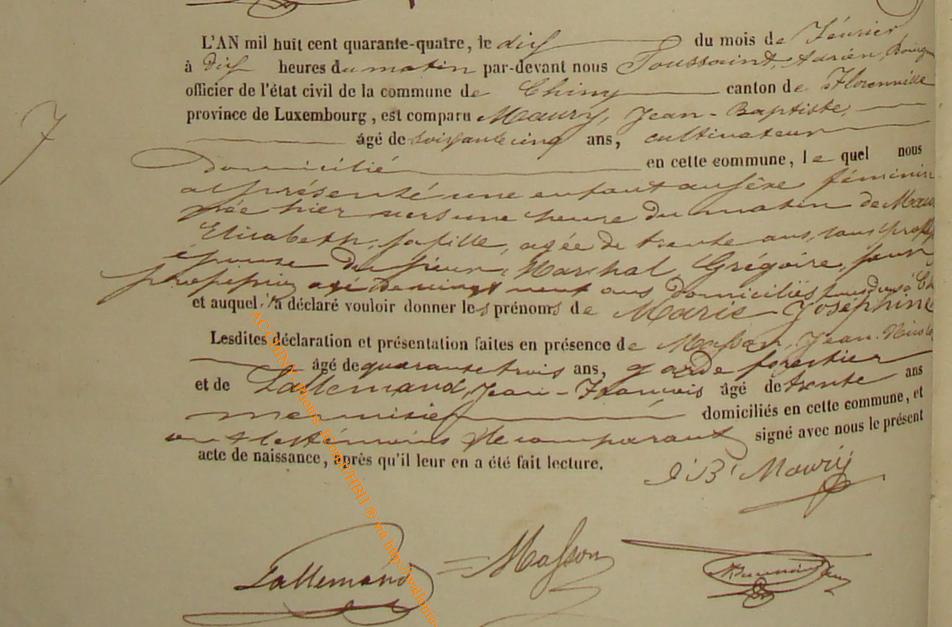 L'AN mil huit cent quarante-quatre, le dix du mois de février
à dix heures du matin par-devant nous Toussaint, Adrien,
officier de l'état civil de la commune de Chiny canton de Florenville
province de Luxembourg, est comparu Maury, Jean-Baptiste,
âgé de soixante cinq ans, cultivateur
domicilié en cette commune, lequel nous
a présenté une enfant du sèxe féminin
née hier vers une heure du matin de
Elisabeth, sa fille, agée de trente ans, sans
épouse du sieur Marchal, Grégoire, sans
profession agé de vingt neuf ans domiciliés tous deux à
et auquel il a déclaré vouloir donner les prénoms de Marie Joséphine
Lesdites déclaration et présentation faites en présence de Masson, Jean-
âgé de quarante trois ans, garde forestier
et de Lallemand, Jean-François âgé de trente ans
menuisier domiciliés en cette commune, et
ont les témoins et le comparant signé avec nous le présent
acte de naissance, après qu'il leur en a été fait lecture.
J. Bte Maury
Lallemand Masson
7